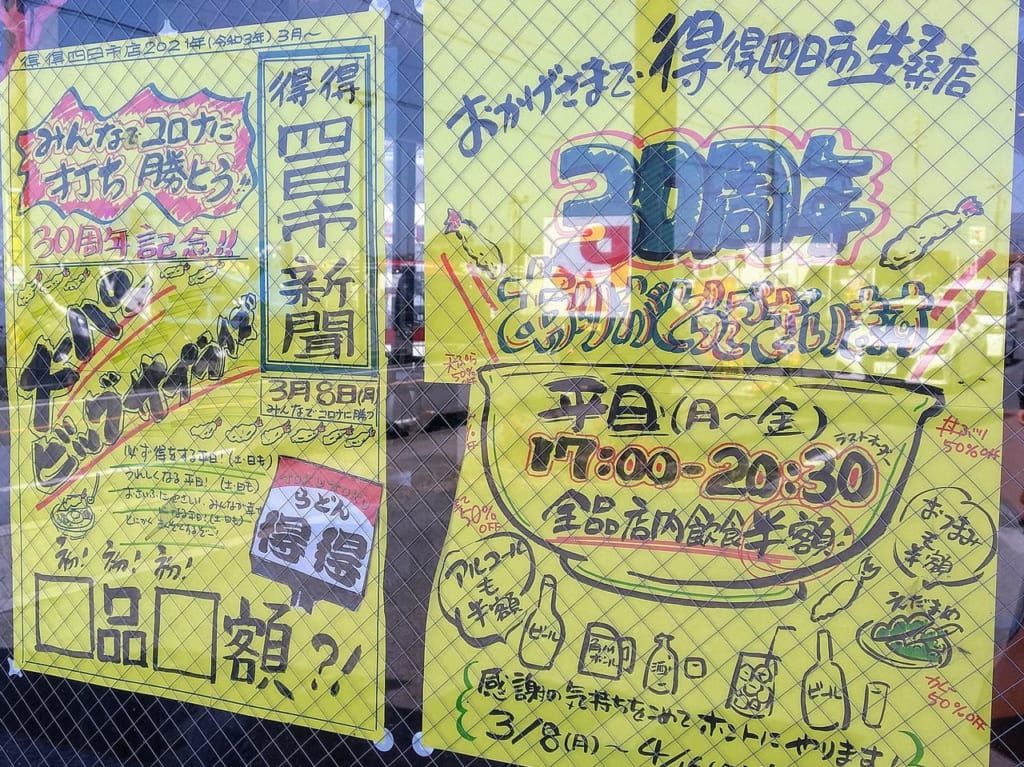 得得四日市店2021年(令和3年)3月~
みんなでコロナに
打ち勝とう!!
30周年記念!!
得得
四日市
新聞
3月8日(月)
みんなでコロナに勝つ
うれしくなる平日!(土・日も)
初!初!初!
うどん
得得
□品□額?!
得得四日市生桑店
おかげさまで
30周年
ありがとうございます
平日(月~金)
17:00-20:30
ラストオーダー
全品店内飲食半額!
丼ぶり
50%OFF
50%
OFF
アルコール
も
半額
おつまみ
も
半額
えだまめ
カレー
50%OFF
ビール
酒
ビール
感謝の気持ちをこめてホントにやります!
3/8(月)~4/16